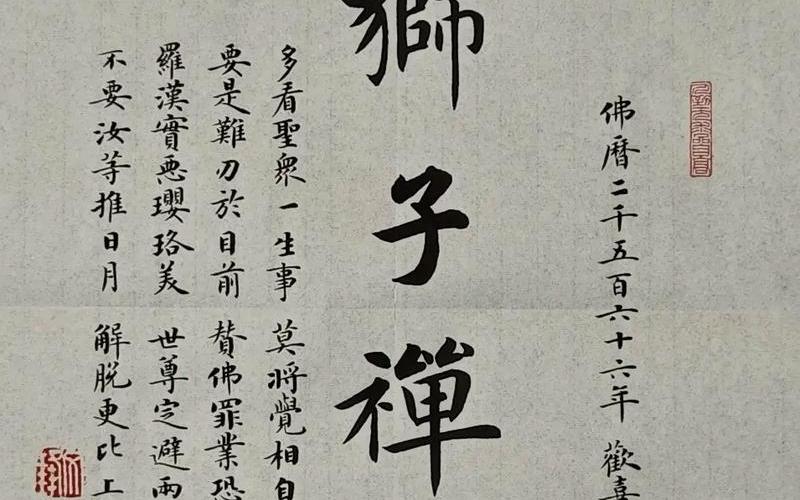 佛曆二千五百六十六年 歡喜
獅子禪
多看聖衆一生事 莫將覺相自
要是難刃於目前 贊佛罪業恐
羅漢實惡瓔珞美 世尊定避兩
不要汝等推日月 解脫更比上